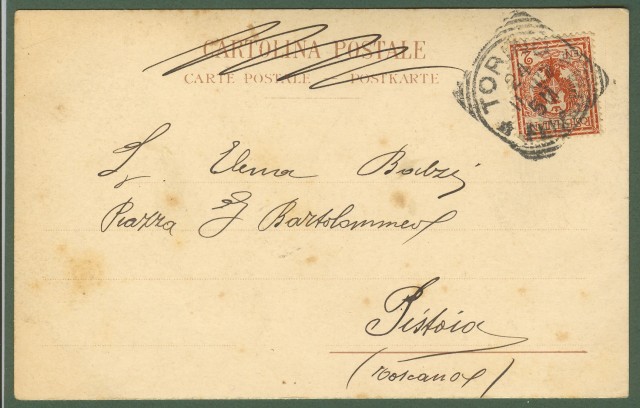 CARTOLINA POSTALE
CARTE POSTALE — POSTKARTE
TOR
S. Elena Babzi
Piazza S. Bartolommeo
Pistoia
(Toscana)